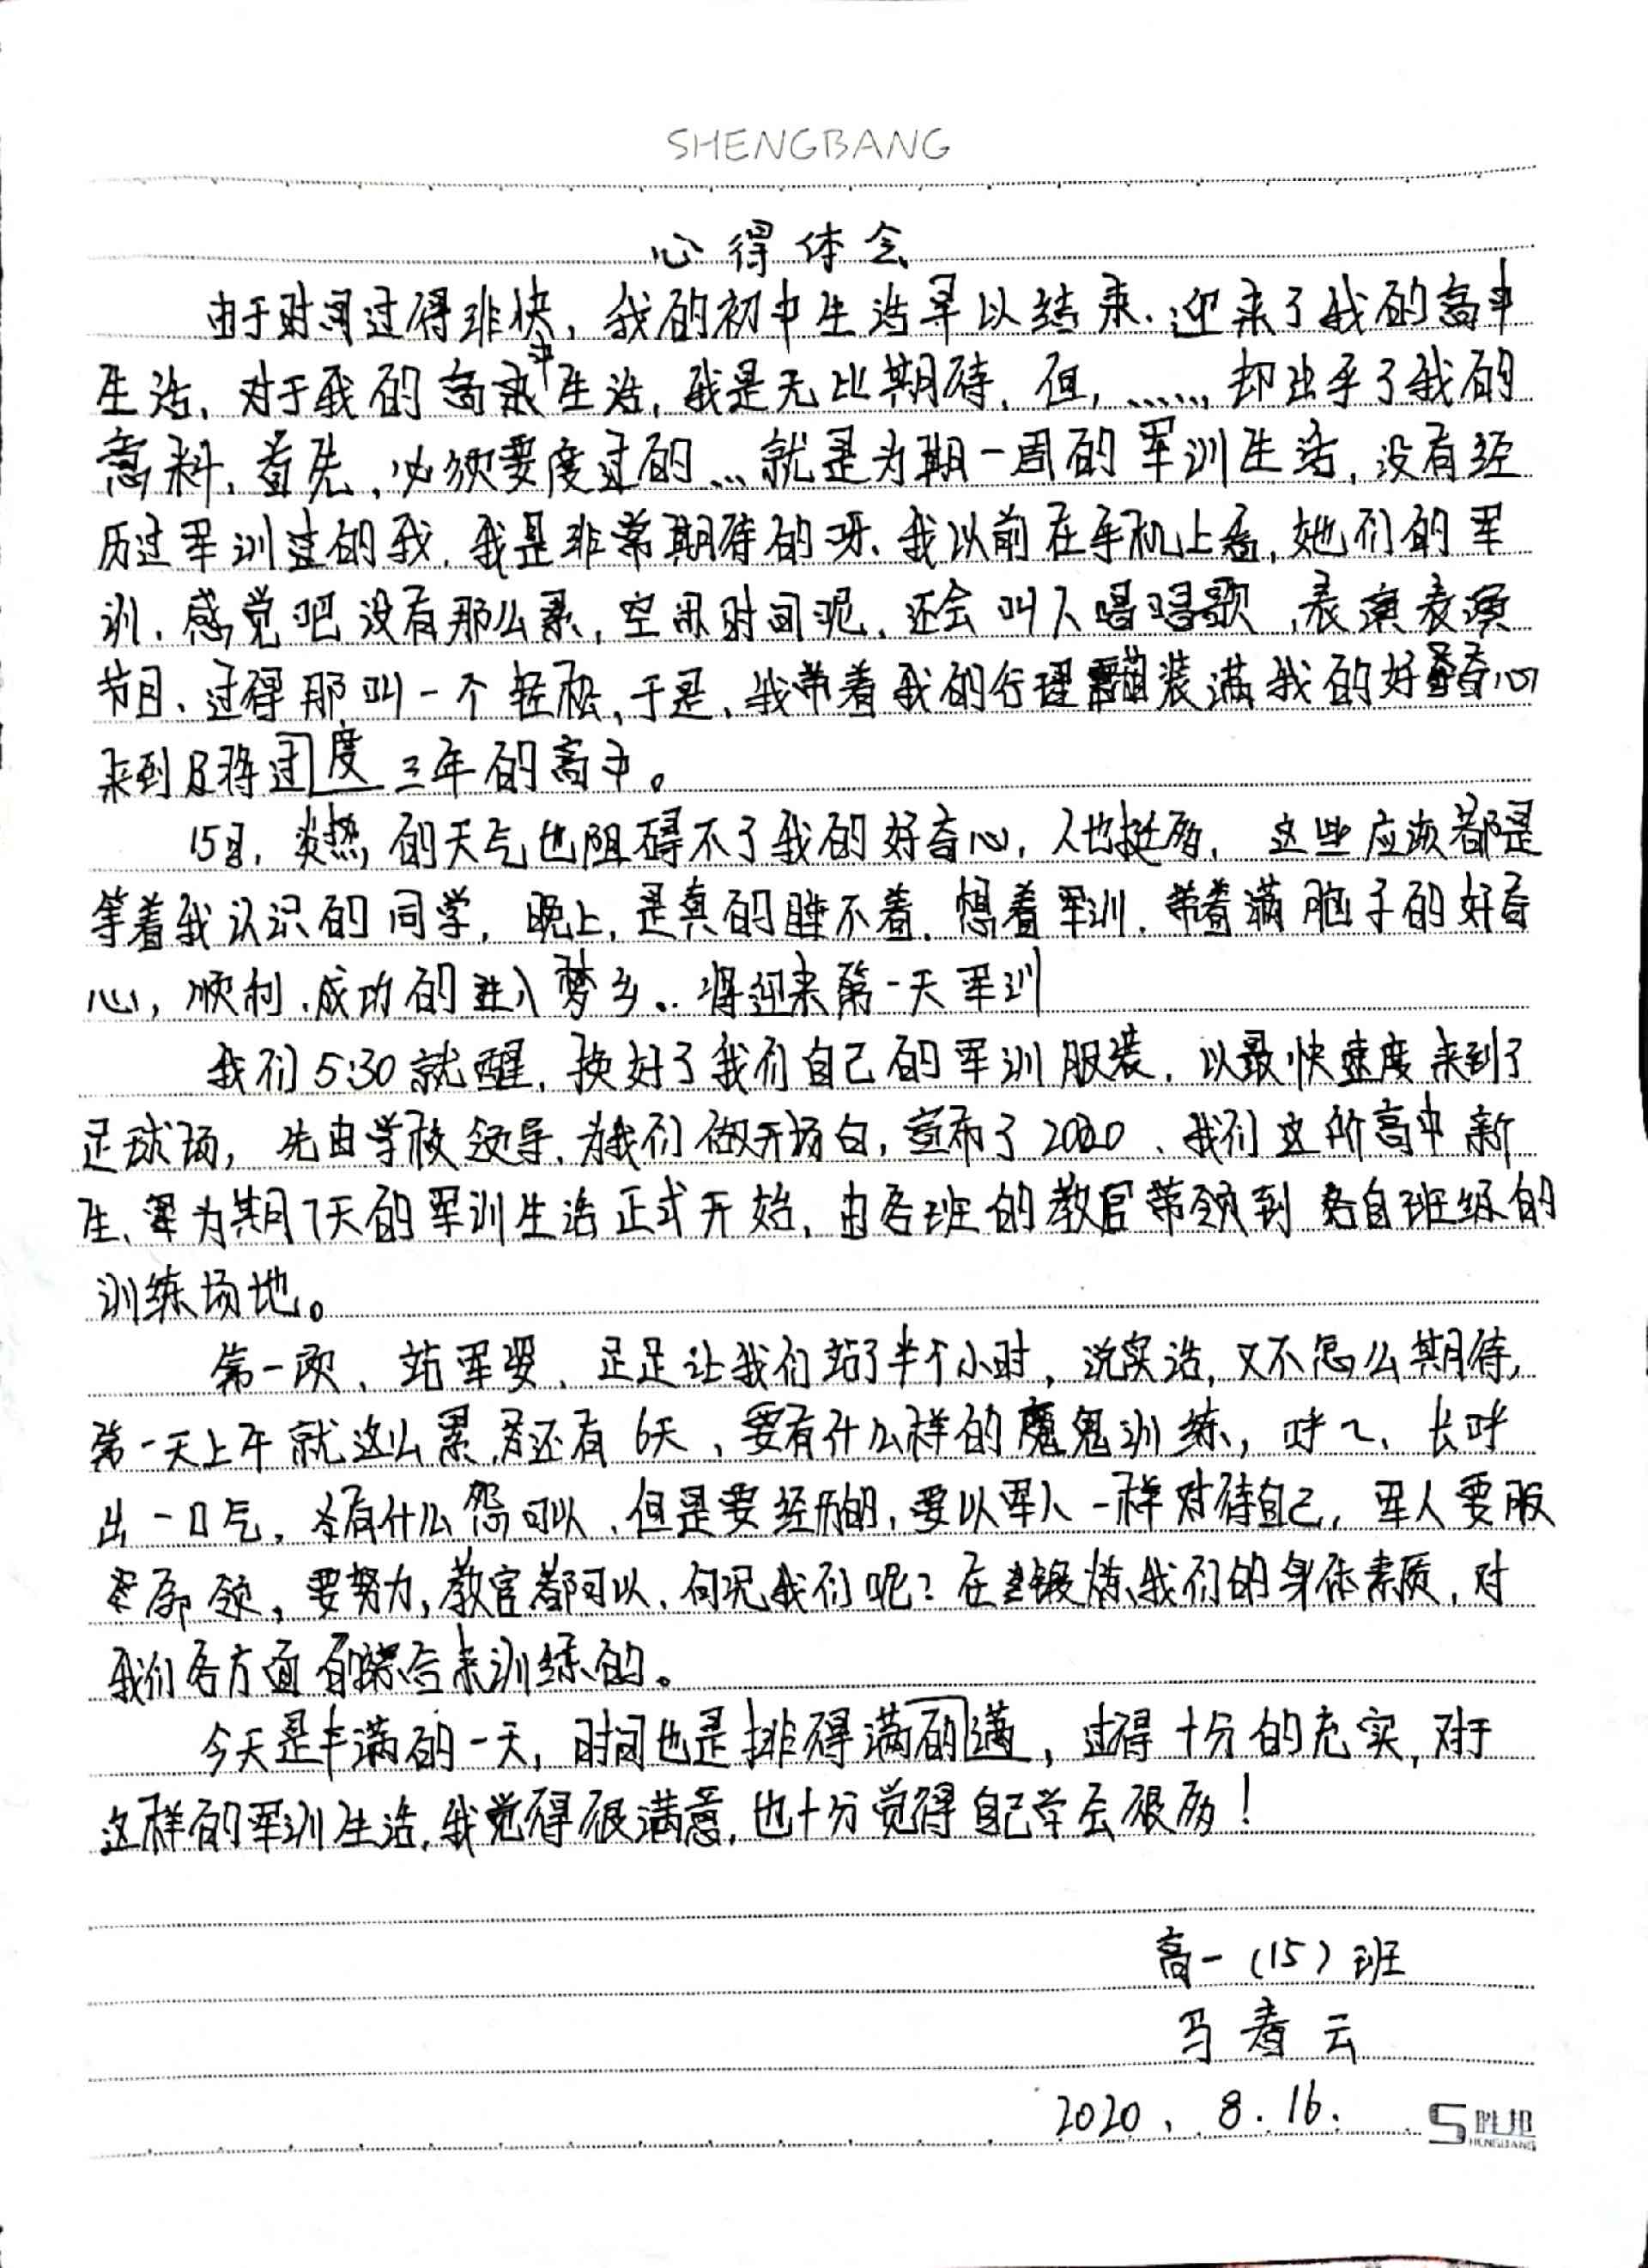 SHENGBANG
心得体会
由于时间过得非快,我的初中生活早以结束.迎来了我的高中
生活,对于我的高中生活,我是无比期待,但,……,却出乎了我的
意料,首先,必须要度过的…就是为期一周的军训生活,没有经
历过军训过的我,我是非常期待的呀、我以前在手机上看,她们的军
训,感觉吧没有那么累,空闲时间呢,还会叫人唱唱歌,表演表演
节目、过得那叫一个轻松,于是、我带着我的行理装满我的好奇心
来到即将过度三年的高中。
15日,炎热的天气也阻碍不了我的好奇心,人也挺多,这些应该都是
等着我认识的同学,晚上,是真的睡不着.想着军训.带着满脑子的好奇
心,顺利、成功的进入梦乡..将迎来第一天军训
我们5:30就醒,换好了我们自己的军训服装,以最快速度来到了
足球场,先由学校领导,为我们做开场白,宣布了2020、我们这所高中新
生、为期7天的军训生活正式开始,由各班的教官带领到各自班级的
训练场地。
第一项、站军姿、足足让我们站了半个小时,说实话,又不怎么期待,
第一天上午就这么累,还有6天、要有什么样的魔鬼训练,呼~、长呼
出一口气,没有什么可以,但是要经历的,要以军人一样对待自己,军人要服
领,要努力,教官都可以,何况我们呢?在锻炼我们的身体素质,对
我们各方面综合来训练的。
今天是丰满的一天,时间也是排得满的满,过得十分的充实,对于
这样的军训生活,我觉得很满意,也十分觉得自己学会很多!
高一(15)班
马春云
2020、8.16.
胜邦
SHENGBANG